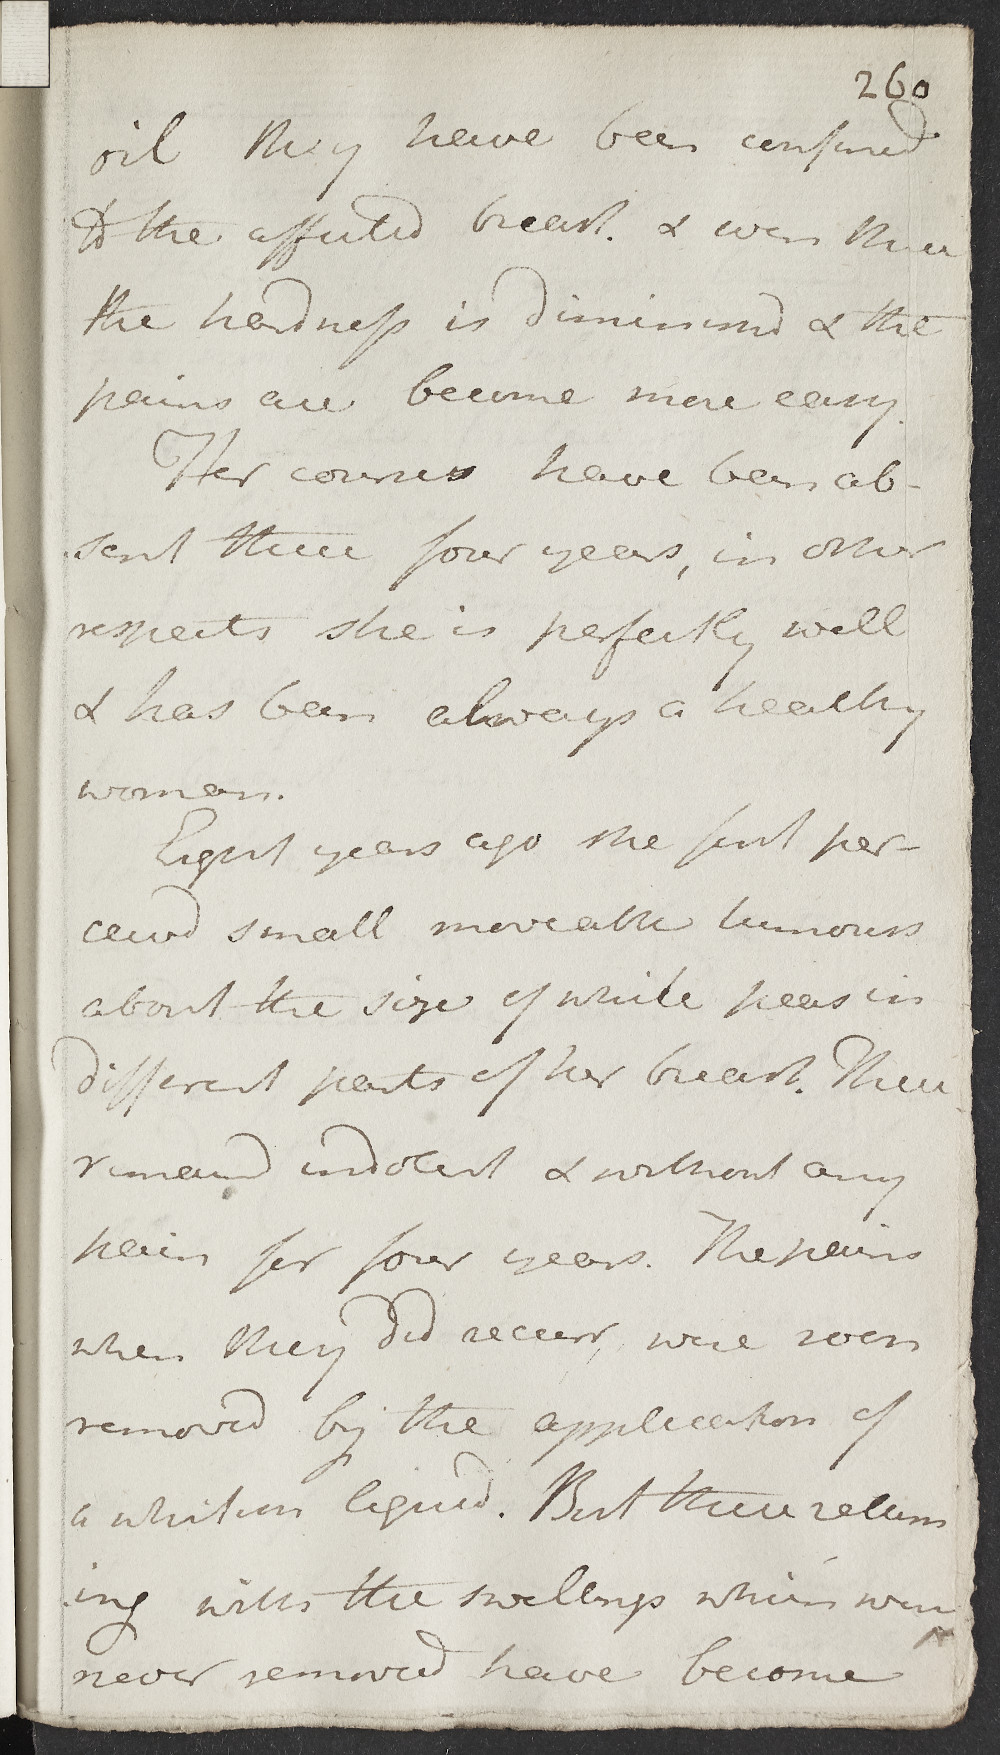 260
oil they have been confined
to the affected breast. & even there
the hardness is diminishd & the
pains are become more easy.
Her courses have been ab-
sent these four years, in other
respects she is perfectly well
& has been always a healthy
woman.
Eight years ago she first per-
ceivd small moveable tumours
about the size of white peas in
different parts of her breast. These
remaind indolent & without any
pain for four years. The pains
when they did recurr, were soon
removed by the application of
a whitish liquid. But these return
ing with the swellings which were
never removed have become